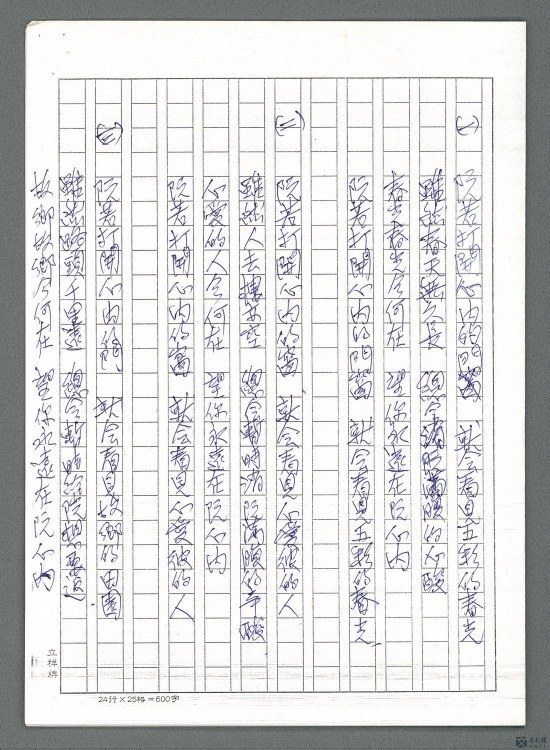 (一) 阮若打開心內的門窗 就会看見五彩的春光
雖然春天無久長 總会消阮滿腹的心酸
春光春光今何在 望你永遠在阮心內
阮若打開心內的門窗 就会看見五彩的春光
(二) 阮若打開心內的窗 就会看見心愛彼的人
雖然人去樓亦空 總会暫時消阮滿腹的辛酸
心愛的人今何在 望你永遠在阮心內
阮若打開心內的窗 就会看見心愛彼的人
(三) 阮若打開心內的門 就会看見故鄉的田園
雖然路頭千里遠 總会暫時給阮想要返
故鄉故鄉今何在 望你永遠在阮心內
立祥牌
24行×25格=600字